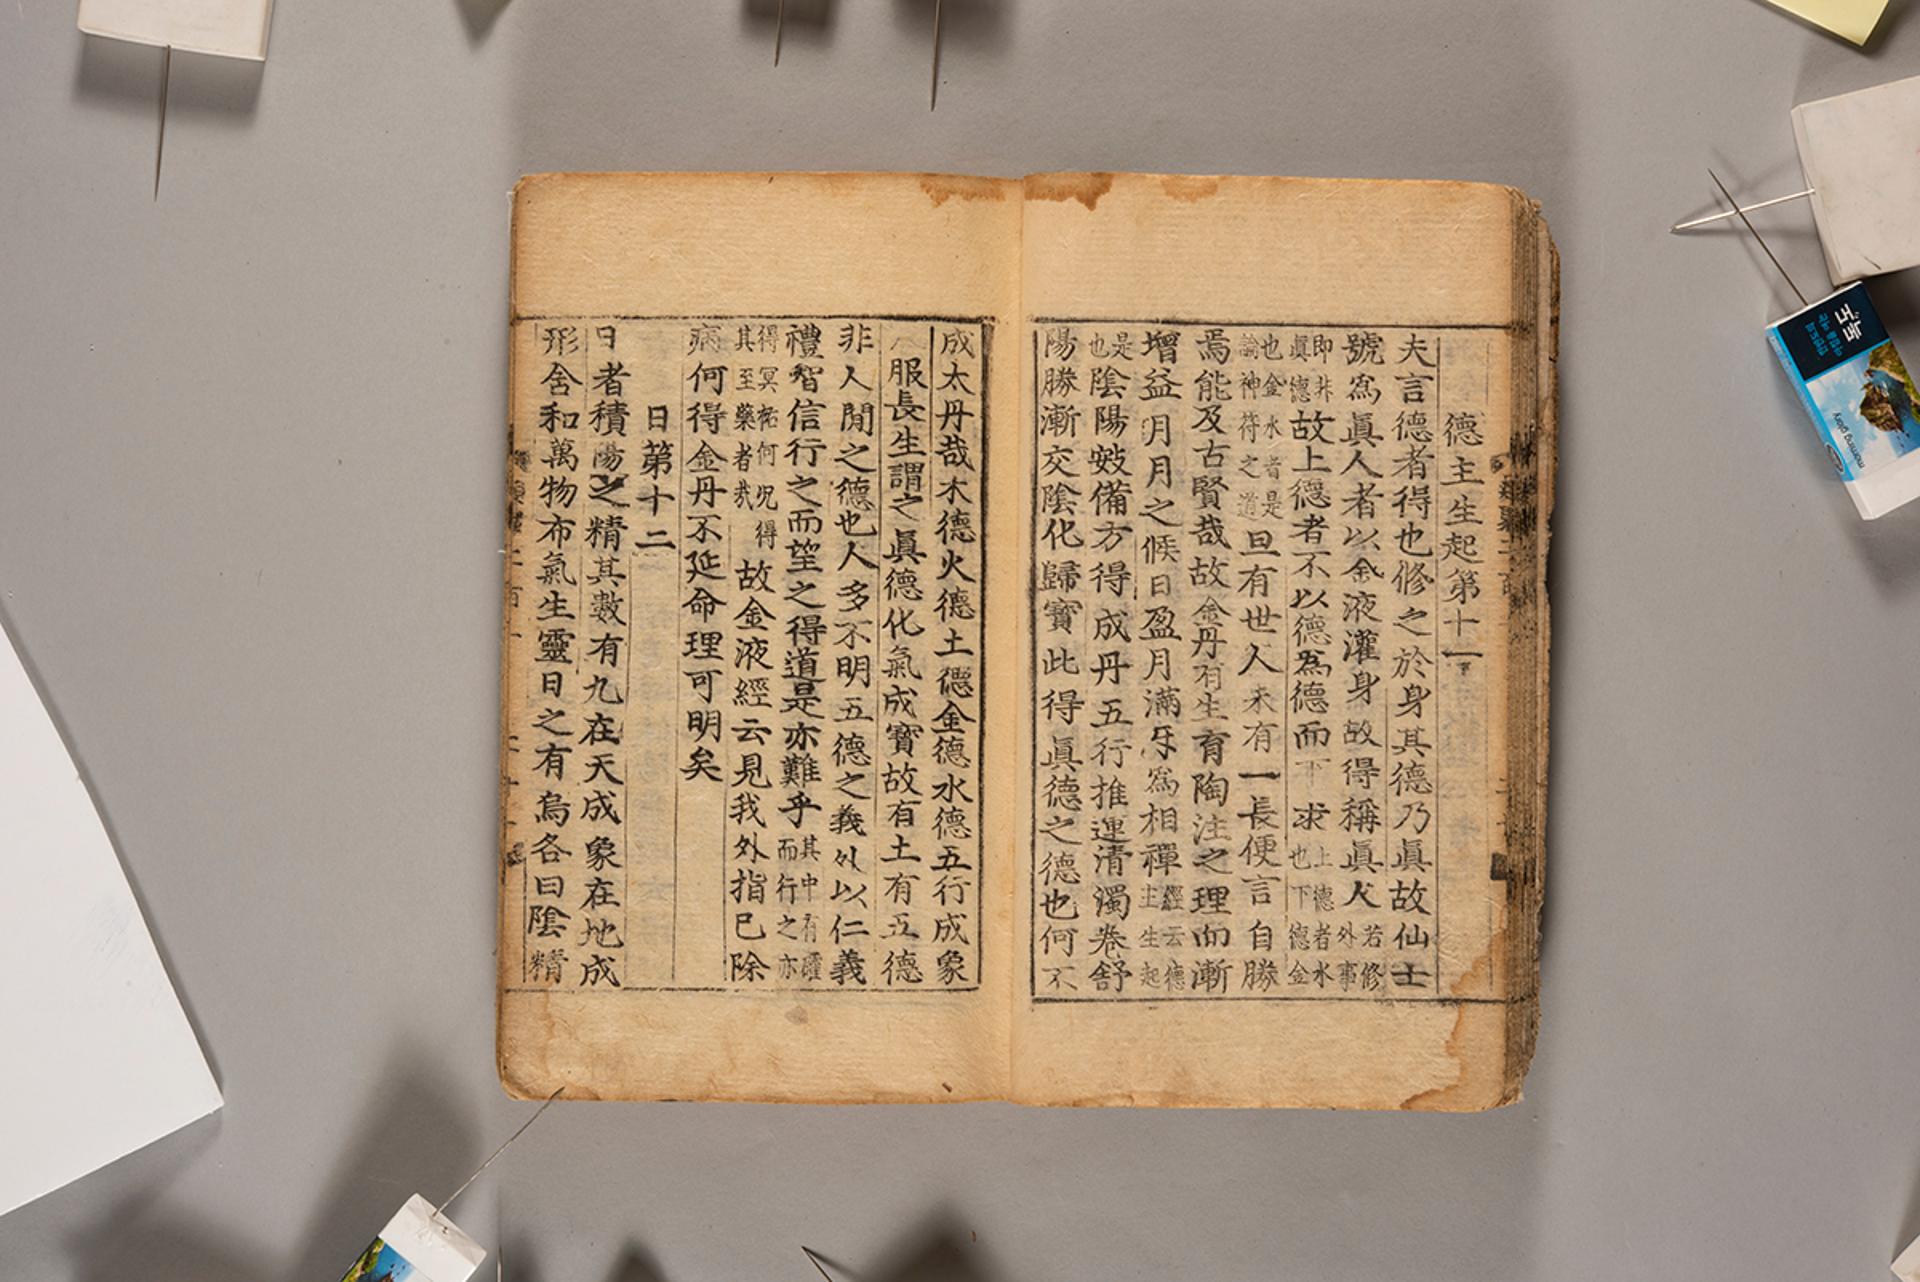 德主生起第十一
夫言德者得也修之於身其德乃眞故仙士
號爲眞人者以金液灌身故得稱眞人若修外事
即非眞德故上德者不以德爲德而不求上德者水也下德金
也金水者是論神符之道旦有世人未有一長便言自勝
焉能及古賢哉故金丹有生育陶注之理而漸
增益月月之候日盈月滿牙爲相禪經云德主生起
是也陰陽妙備方得成丹五行推運清濁卷舒
陽勝漸交陰化歸寶此得眞德之德也何不
成太丹哉木德火德土德金德水德五行成象
服長生謂之眞德化氣成寶故有土有五德
非人間之德也人多不明五德之義外以仁義
禮智信行之而望之得道是亦難乎其中有而行之亦
得冥祐何況得其至藥者哉故金液經云見我外指已除
病何得金丹不延命理可明矣
日第十二
日者積陽之精其數有九在天成象在地成
形舍和萬物布氣生靈日之有烏各曰陰精
모닝
morning glory